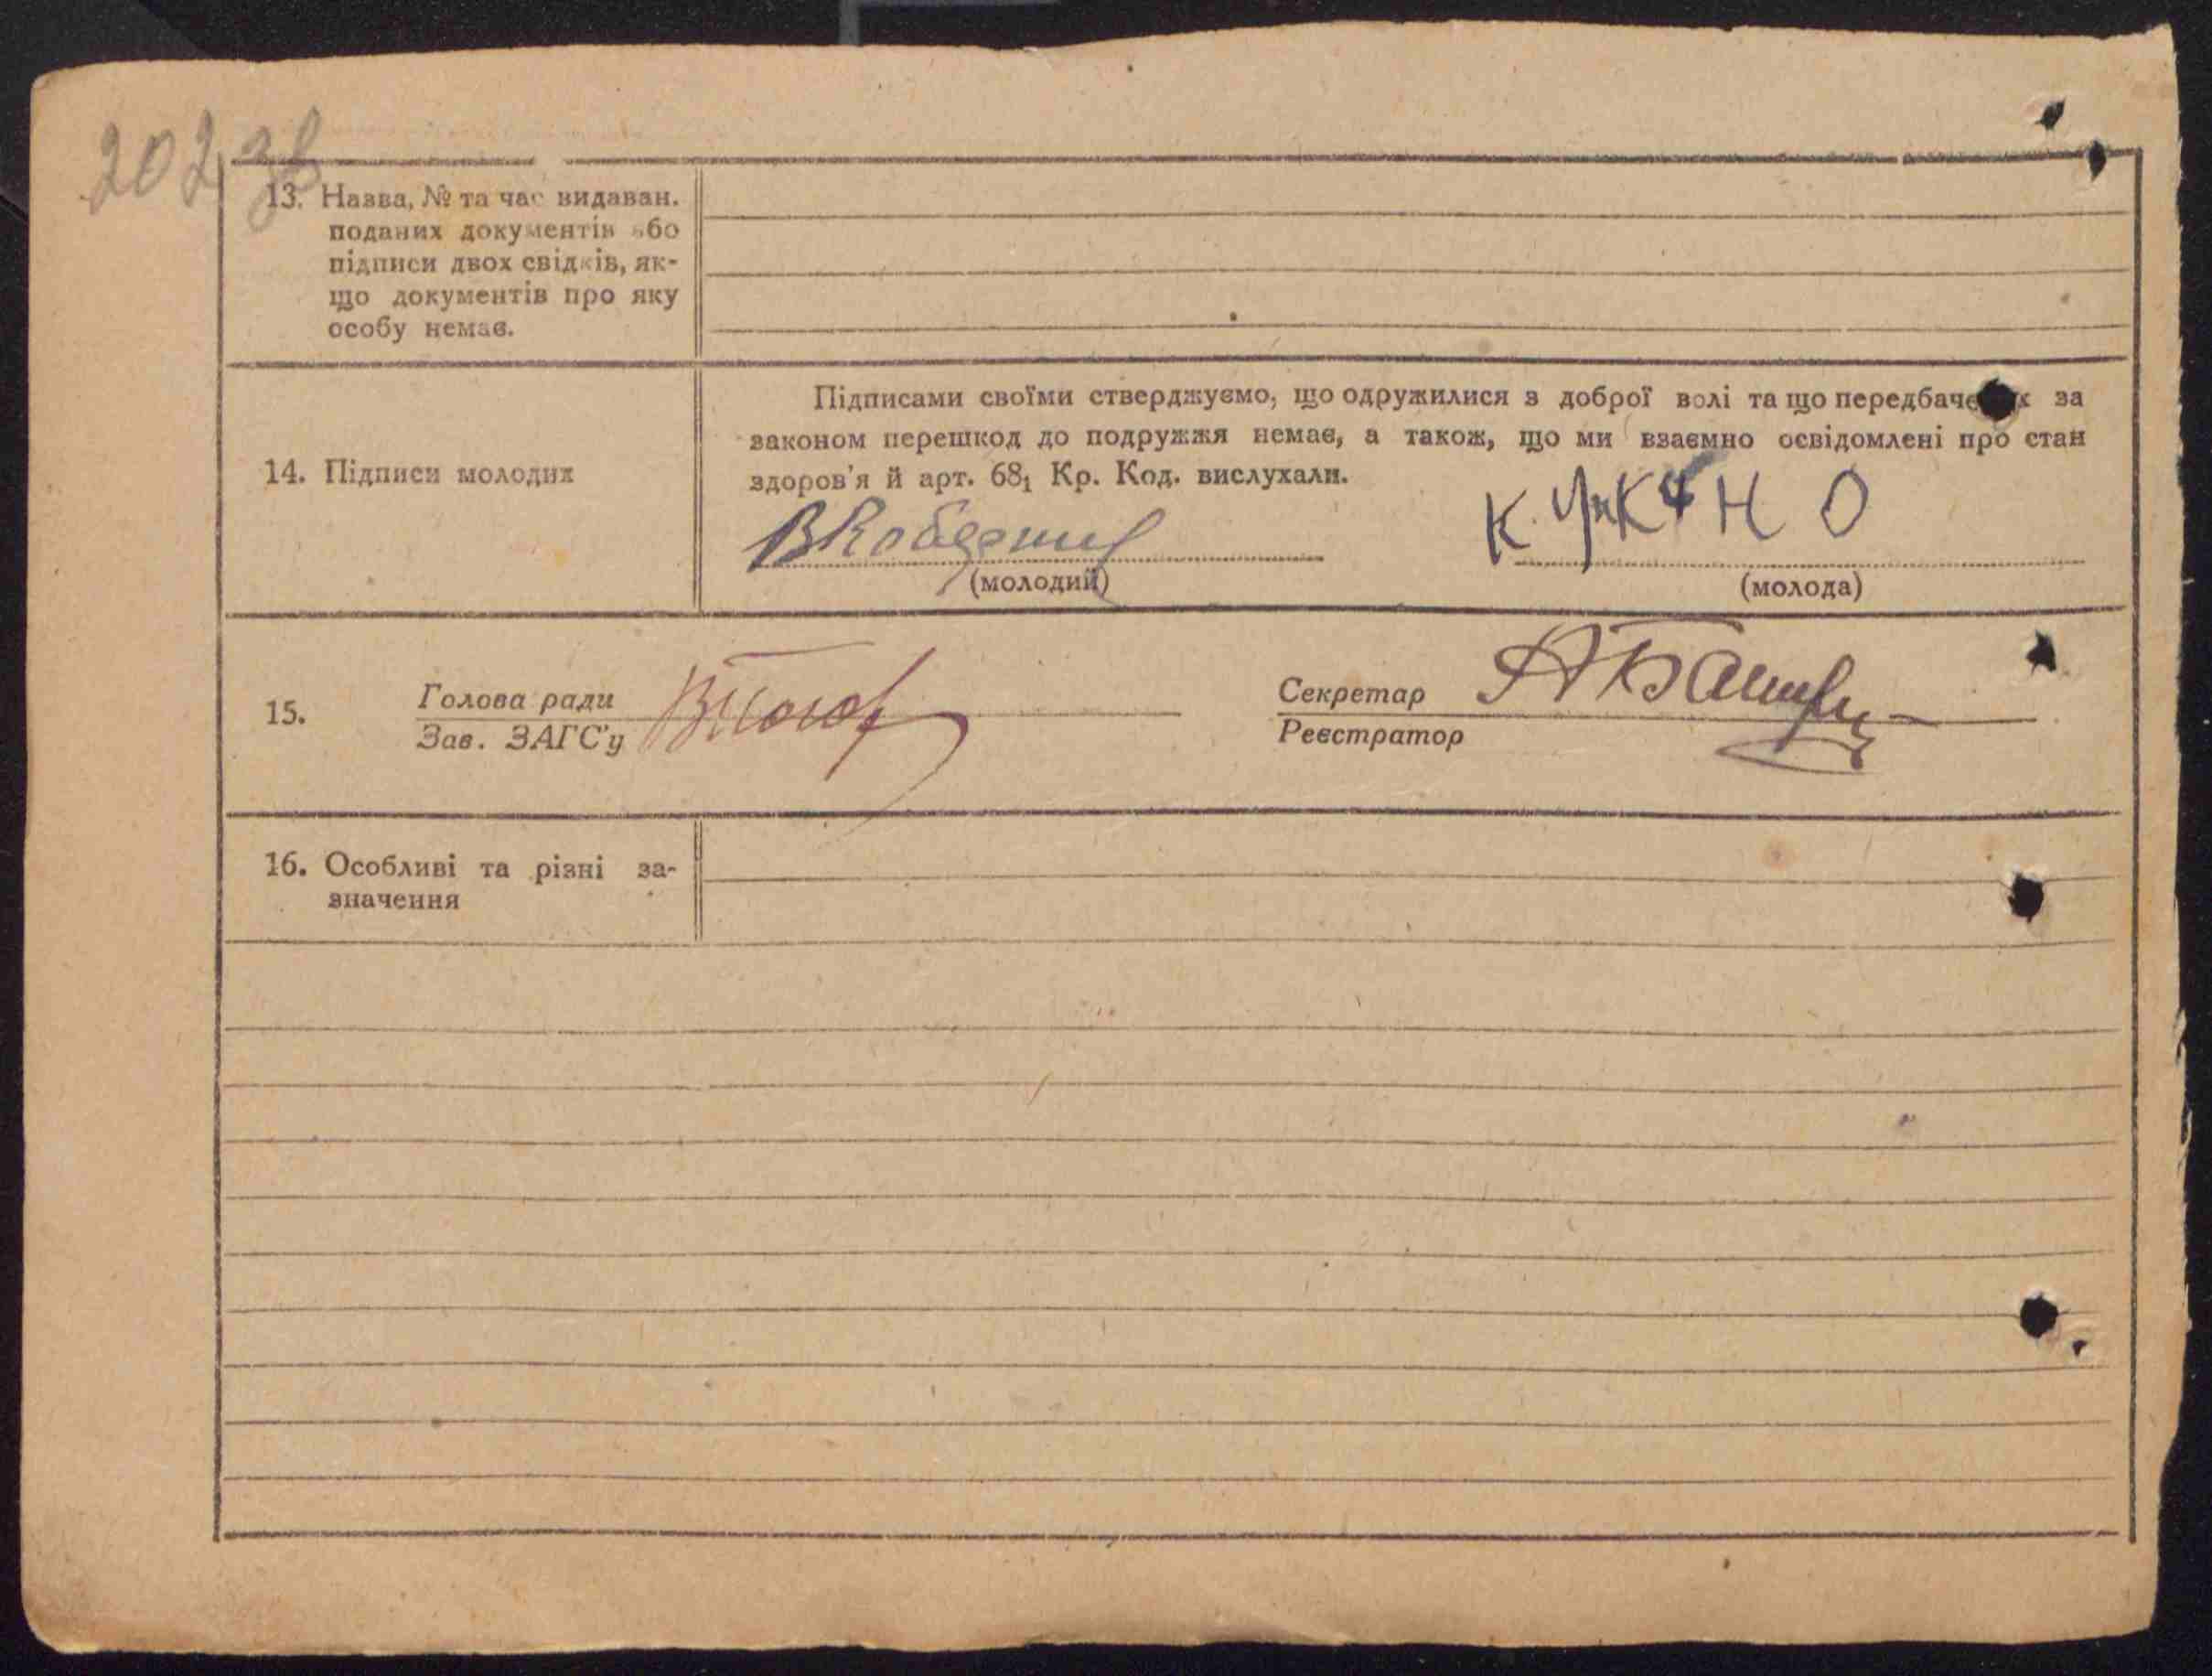 202 зв
13. Назва, № та час видаван.
поданих документів або
підписи двох свідків, як-
що документів про яку
особу немає.
14. Підписи молодих
Підписами своїми стверджуємо, що одружилися з доброї волі та що передбачених за
законом перешкод до подружжя немає, а також, що ми взаємно освідомлені про стан
здоров'я й арт. 68₁ Кр. Код. вислухали.
(молодий)
(молода)
15.
Голова ради
Зав. ЗАГС'у
Секретар
Реєстратор
16. Особливі та різні за-
значення